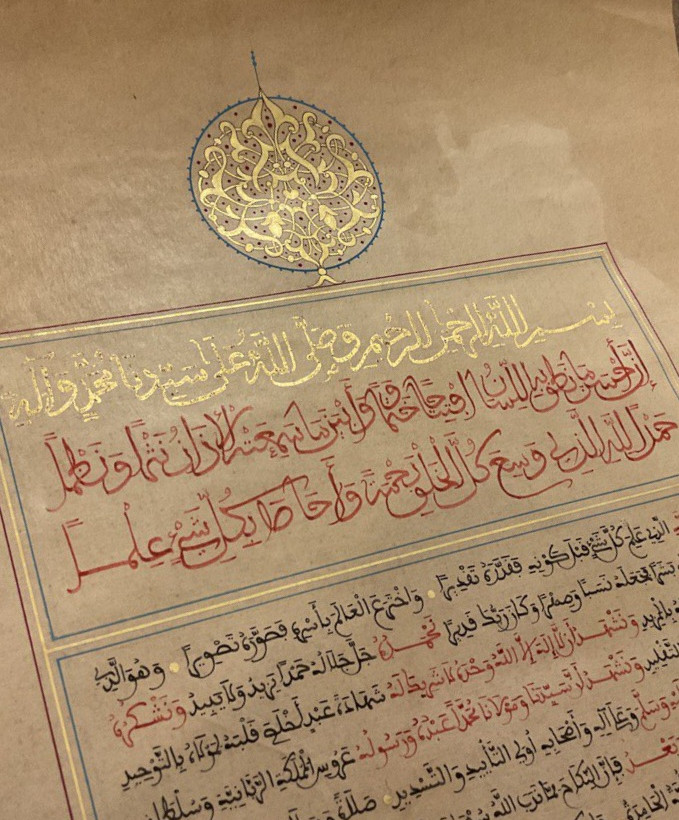 بسم الله الرحمن الرحيم وصلى الله على سيدنا محمد وآله
إن أحسن ما نطق به اللسان افتتاحا وأبين ما سمعته الآذان نثرا ونظما
حمد الله الذي وسع كل الخلق رحمة وأحاط بكل شيء علما
الذي علم كل شيء قبل كونه فقدره تقديرا • واخترع العالم بأسره فصوره تصويرا • وهو الذي
بشرا فجعله نسبا وصهرا وكان ربك قديرا نحمده جل جلاله حمدا يزيد ولا يبيد ونشكره
بالمزيد ونشهد أن لا إله إلا الله وحده لا شريك له شهادة عبد أخلص قلبه لمولاه بالتوحيد
التقليد ونشهد أن سيدنا ومولانا محمدا عبده ورسوله عروس المملكة الربانية وسلطان
وسلم وعلى آله وأصحابه أولي التأييد والتسديد • صلاة
وبعد فإن النكاح مما ندب الله